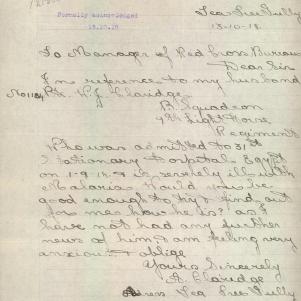 Formally acknowledged
18.10.18
Tea Tree Gully
15-10-18
To Manager of Red Cross Bureau
Dear Sir
In reference to my husband
Pte W.J. Claridge
B Squadron
9th Light Horse
Regiment
Who was admitted to 31st
Stationary Hospital Egypt
on 1-9-18 & is severely ill with
Malaria Would you be
good enough to try & find out
for me how he is? as I
have not had any further
news of him & am feeling very
anxious & oblige
Yours Sincerely
Claridge
Tea Tree Gully